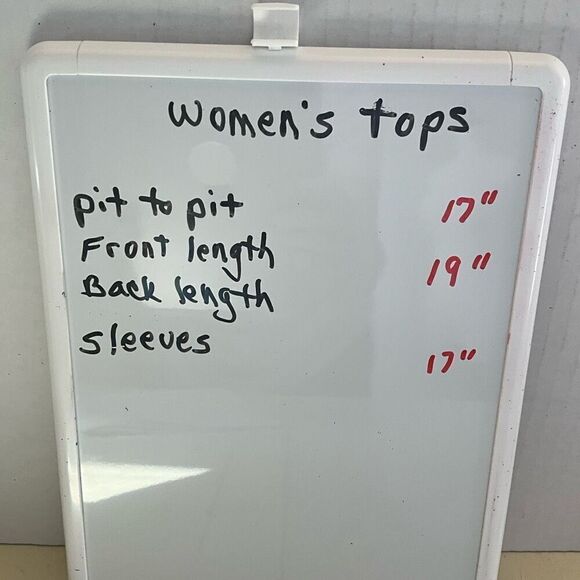 women's tops
pit to pit 17"
Front length 19"
Back length
sleeves 17"